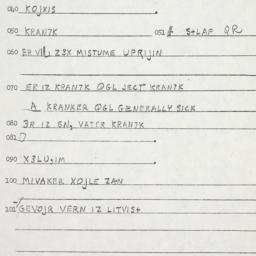 040 KOJXIS
050 KRANTK 051 S+LAF QR
060 ER VIL Z3X MISTUME UPRIJIN
070 ER IZ KRANTK QGL JECT KRANTK
A KRANKER QGL GENERALLY SICK
080 3R IZ GN, VATER KRANTK
081
090 X3LUSIM
100 MIVAKER XOJLE ZAN
101 GEVOJR VERN IZ LITVIS+